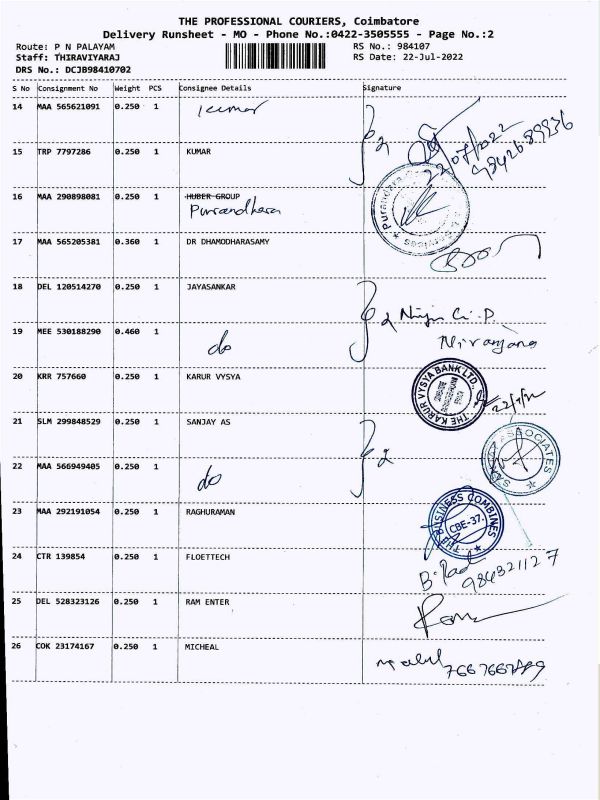 THE PROFESSIONAL COURIERS, Coimbatore
Delivery Runsheet - MO - Phone No.:0422-3505555 - Page No.:2
Route: P N PALAYAM RS No.: 984107
Staff: THIRAVIYARAJ RS Date: 22-Jul-2022
DRS No.: DCJB98410702
S No Consignment No Weight PCS Consignee Details Signature
14 MAA 565621091 0.250 1 Kumar
22/07/2022
15 TRP 7797286 0.250 1 KUMAR
16 MAA 290898081 0.250 1 HUBER GROUP
Purrandhara
17 MAA 565205381 0.360 1 DR DHAMODHARASAMY
18 DEL 120514270 0.250 1 JAYASANKAR
19 MEE 530188290 0.460 1 do Niranjana
20 KRR 757660 0.250 1 KARUR VYSYA THE KARUR VYSYA BANK LTD.
21 SLM 299848529 0.250 1 SANJAY AS
22 MAA 566949405 0.250 1 do
23 MAA 292191054 0.250 1 RAGHURAMAN THE BUSINESS COMBINES CBE-37.
24 CTR 139854 0.250 1 FLOETTECH
25 DEL 528323126 0.250 1 RAM ENTER
26 COK 23174167 0.250 1 MICHEAL